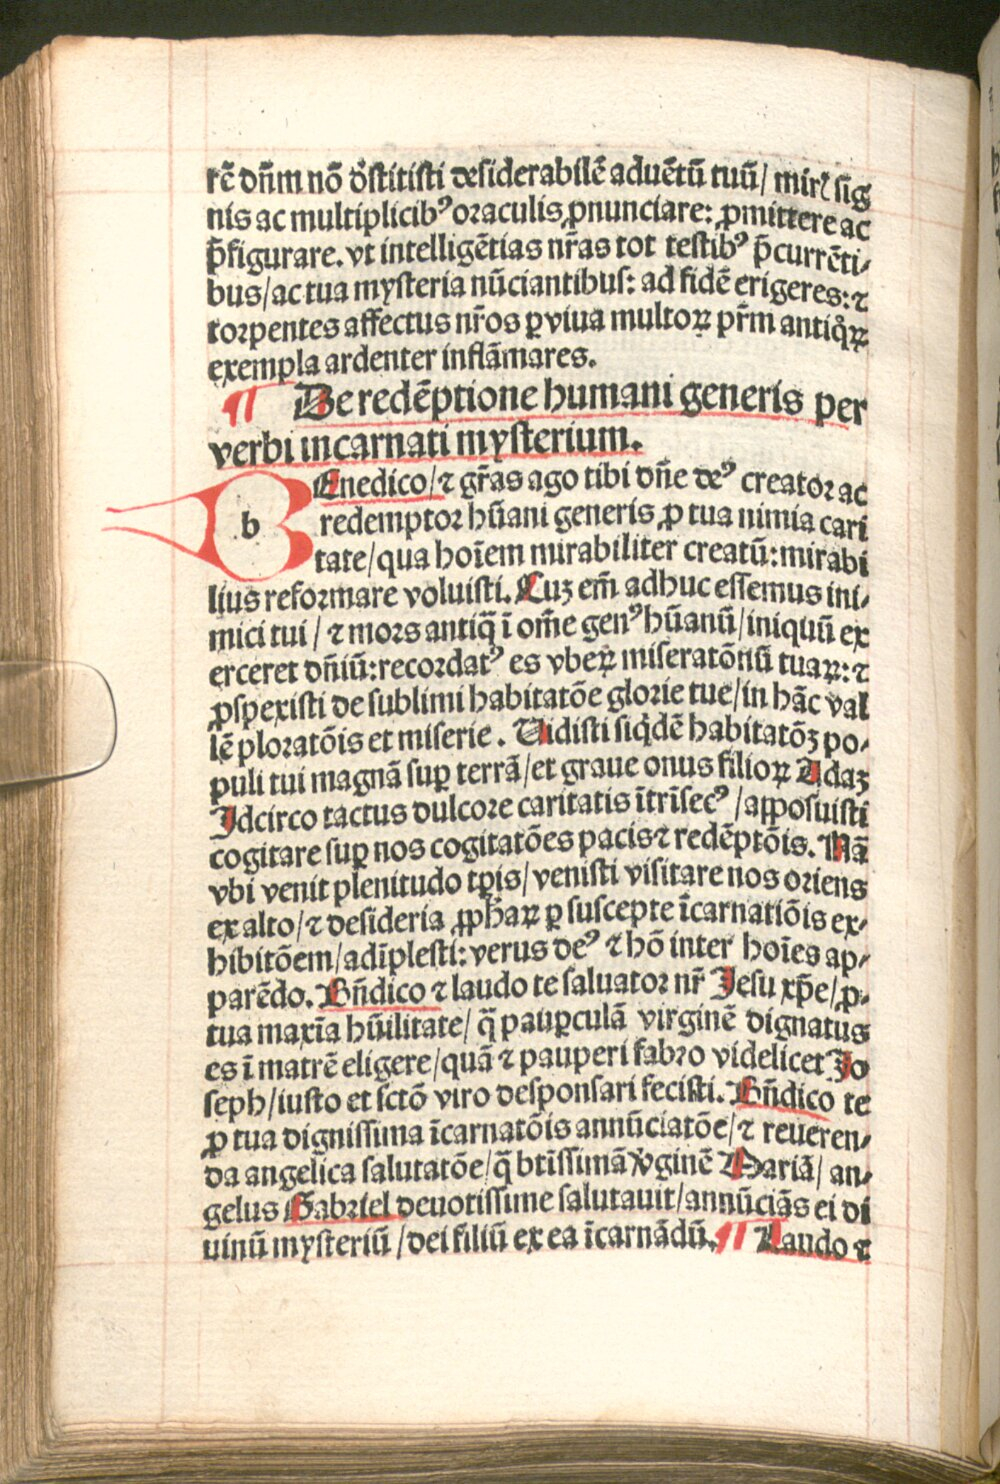 rē dn̄m nō ꝺstitisti desiderabilē aduētū tuū/ mirꝭ sig
nis ac multiplicibꝰ oraculis ꝓnunciare: ꝓmittere ac
p̄figurare. vt intelligētias nr̄as tot testibꝰ p̄currēti⸗
bus/ac tua mysteria nūciantibus: ad fidē erigeres: ⁊
torpentes affectus nr̄os ꝑ viua multoꝝ pr̄m antiqͦꝝ
exempla ardenter inflāmares.
¶ De redēptione humani generis per
verbi incarnati mysterium.
b Enedico/⁊ gr̄as ago tibi dn̄e deꝰ creator ac
redemptor hūani generis ꝓ tua nimia cari
tate/qua hoīem mirabiliter creatū: mirabi
lius reformare voluisti. Cuꝫ em̄ adhuc essemus ini⸗
mici tui/ ⁊ mors antiq̄ ī om̄e genꝰ hūanū/iniquū ex
erceret dn̄iū: recordatꝰ es vbeꝝ miseratōnū tuaꝝ: ⁊
ꝓspexisti de sublimi habitatōe glorie tue/in hāc val
lē ploratōis et miserie. Uidisti siqͥdē habitatōꝫ po⸗
puli tui magnā suꝑ terrā/et graue onus filioꝝ Adaꝫ
Idcirco tactus dulcore caritatis ītrīsecꝰ/apposuisti
cogitare suꝑ nos cogitatōes pacis ⁊ redēptōis. Nā
vbi venit plenitudo tꝑis/venisti visitare nos oriens
ex alto/⁊ desideria ꝓph̄aꝝ ꝑ suscepte īcarnatiōis ex⸗
hibitōem/adīplesti: verus deꝰ ⁊ hō inter hoīes ap⸗
parēdo. Bn̄dico ⁊ laudo te saluator nr̄ Jesu xp̄e/ꝓ⸗
tua maxīa hūilitate/ q̄ pauꝑculā virginē dignatus
es ī matrē eligere/quā ⁊ pauperi fabro videlicet Jo
seph/iusto et sctō viro desponsari fecisti. Bn̄dico te
ꝓ tua dignissima īcarnatōis annūciatōe/⁊ reueren⸗
da angelica salutatōe/q̄ btīssimā v̓ginē Mariā/ an⸗
gelus Gabriel deuotissime salutauit/annūciās ei di
uinū mysteriū/dei filiū ex ea īcarnādū. ¶ Laudo ⁊